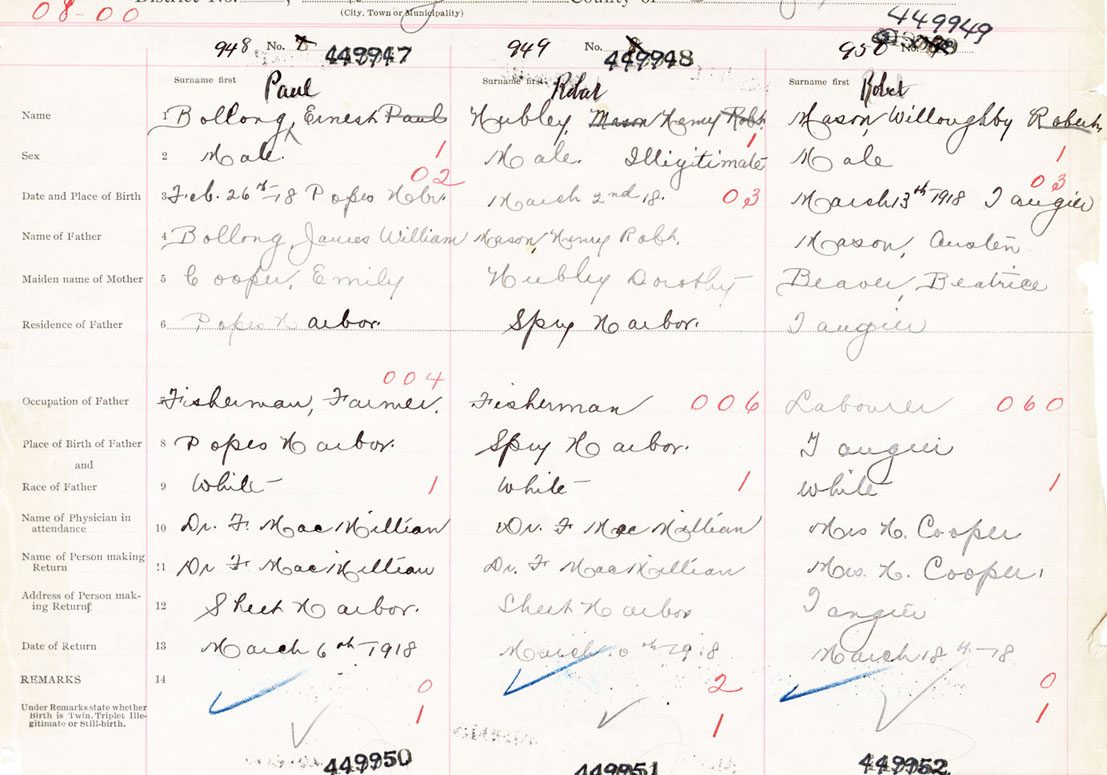 08-00
(City, Town or Municipality)
449949
948 No. 449947 949 No. 449948 950 No.
Surname first Surname first Surname first
Paul Robert Robert
Name 1 Bollong, Ernest Paul Hubley, Mason Henry Robt. Mason, Willoughby Robert
Sex 2 Male. 1 Male. Illigitimate 1 Male 1
02 03
Date and Place of Birth 3 Feb. 26th-18 Popes Hbr. March 2nd 18. 03 March 13th 1918 Tangier
Name of Father 4 Bollong, James William Mason, Henry Robt. Mason, Austen
Maiden name of Mother 5 Cooper, Emily Hubley Dorothy Beaver, Beatrice
Residence of Father 6 Popes Harbor. Spry Harbor. Tangier
004
Occupation of Father Fisherman, Farmer. Fisherman 006 Labourer 060
Place of Birth of Father 8 Popes Harbor. Spry Harbor. Tangier
and
Race of Father 9 White 1 White 1 White 1
Name of Physician in
attendance 10 Dr. F MacMillian Dr. F MacMillian Mrs H. Cooper
Name of Person making
Return 11 Dr F MacMillian Dr. F MacMillian Mrs. H. Cooper.
Address of Person mak-
ing Return 12 Sheet Harbor. Sheet Harbor Tangier
Date of Return 13 March 6th-1918 March th-1918 March 18th-18
REMARKS 14 0 2 0
Under Remarks state whether
Birth is Twin, Triplet Ille-
gitimate or Still-birth. 1 1 1
449950 449951 449952